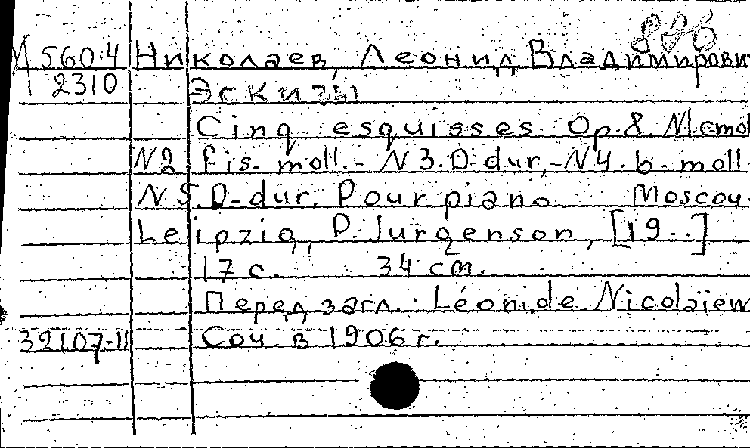 886
М 5604 Николаев, Леонид Владимирови
2310 Эскизы
Cinq esquisses Op.8. N.c mol
N2. fis-moll.-N3.D-dur,-N4.b-moll.
N5.D-dur. Pour piano Moscou-
Leipzig, P. Jurgenson, [19..]
17 с. 34 cm.
Перед загл.: Léonide Nicolaïew
32107-II Соч. в 1906 г.